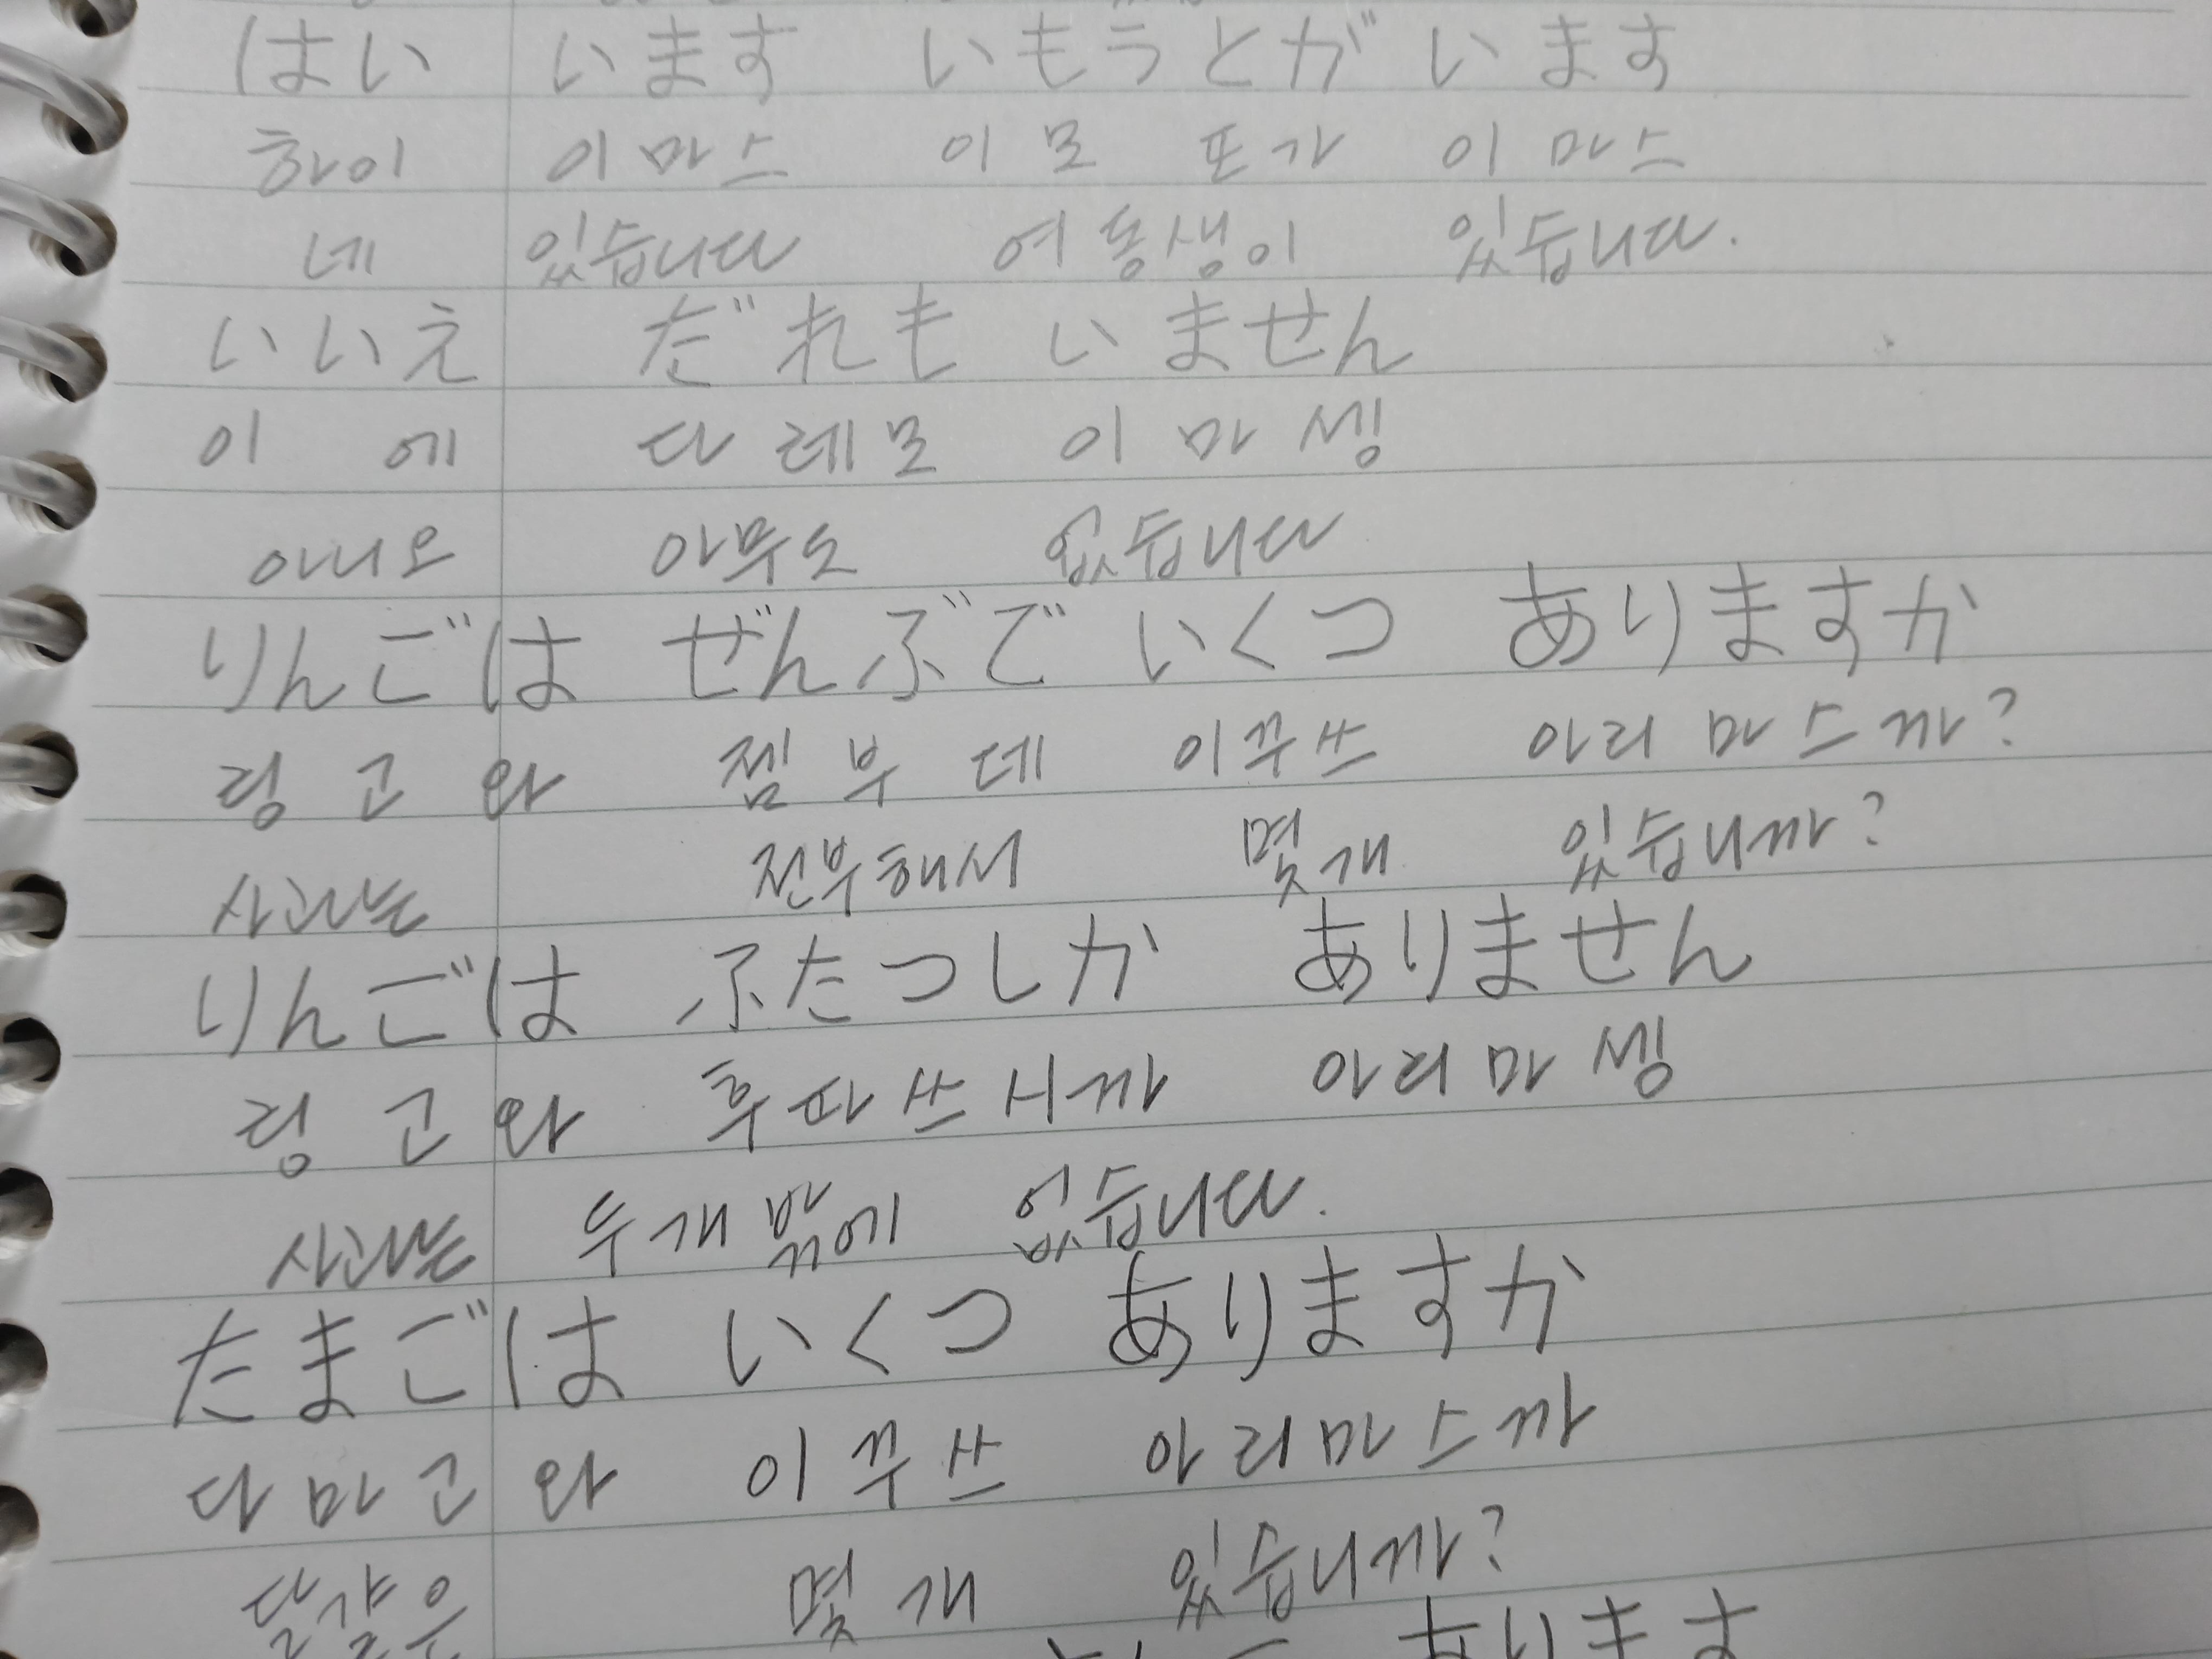 はい います いもうとが います
하이 이마스 이모 또가 이마스
네 있습니다 여동생이 있습니다.
いいえ だれも いません
이 에 다레모 이마셍
아니오 아무도 없습니다
りんごは ぜんぶで いくつ ありますか
링고와 젬부데 이꾸쓰 아리마스까?
사과는 전부해서 몇개 있습니까?
りんごは ふたつしか ありません
링고와 후따쓰시까 아리마셍
사과는 두개밖에 없습니다.
たまごは いくつ ありますか
다마고와 이꾸쓰 아리마스까
달걀은 몇개 있습니까?
あります